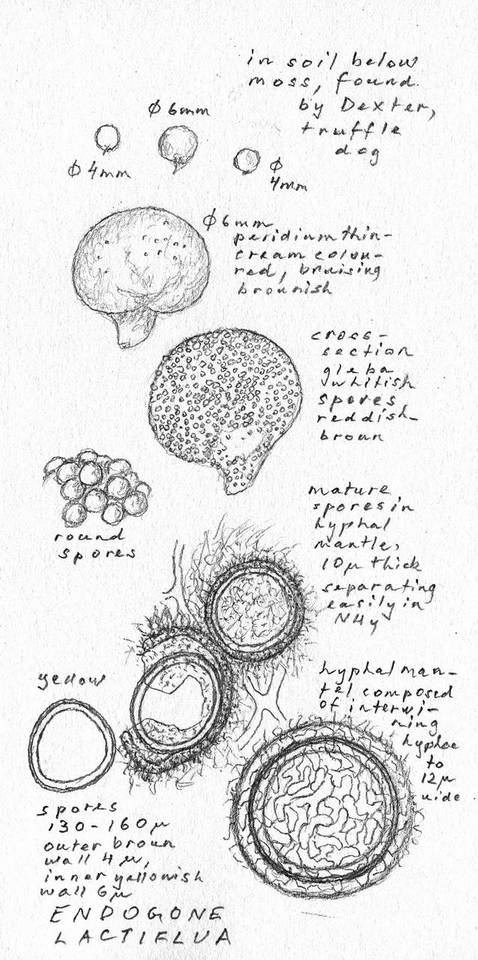 in soil below
moss, found
by Dexter,
truffle
dog
φ 6mm
φ 4mm
φ
4mm
φ 6mm
peridium thin-
cream colou-
red, bruising
brownish
cross-
section
gleba
whitish
spores
reddish-
brown
round
spores
mature
spores in
hyphal
mantle,
10μ thick
separating
easily in
NH4
yellow
hyphal man-
tel composed
of interwi-
ning
hyphae
to
12μ
wide
spores
130-160μ
outer brown
wall 4μ,
inner yellowish
wall 6μ
ENDOGONE
LACTIFLUA